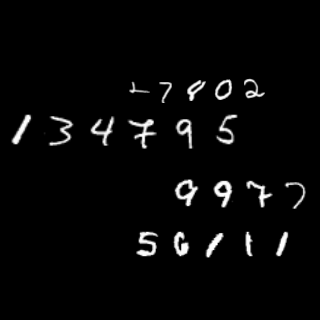 7802
134795
9977
56111